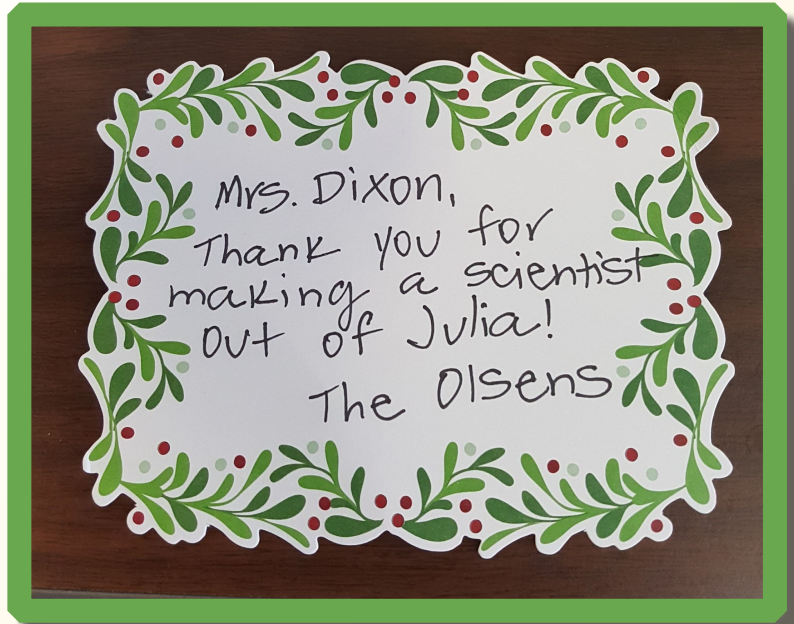 Mrs. Dixon,
Thank you for
making a scientist
out of Julia!
The Olsens